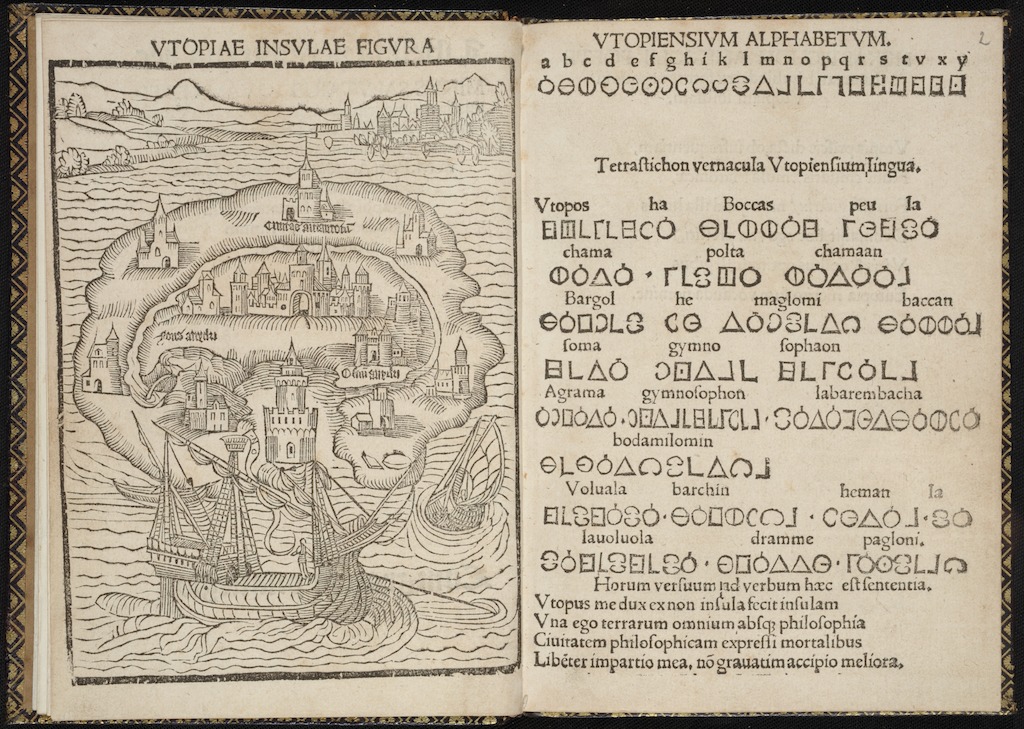 VTOPIAE INSVLAE FIGVRA
fons anydri
Ostium anydri
VTOPIENSIVM ALPHABETVM.
2
a b c d e f g h i k l m n o p q r s t v x y
Tetrastichon vernacula Vtopiensium lingua.
Vtopos ha Boccas peu la
chama polta chamaan
Bargol he maglomi baccan
soma gymno sophaon
Agrama gymnosophon labarembacha
bodamilomin
Voluala barchin heman la
lauoluola dramme pagloni.
Horum versuum ad verbum hæc est sententia.
Vtopus me dux ex non insula fecit insulam
Vna ego terrarum omnium absqꝫ philosophia
Ciuitatem philosophicam expressi mortalibus
Libēter impartio mea, nō grauatim accipio meliora.